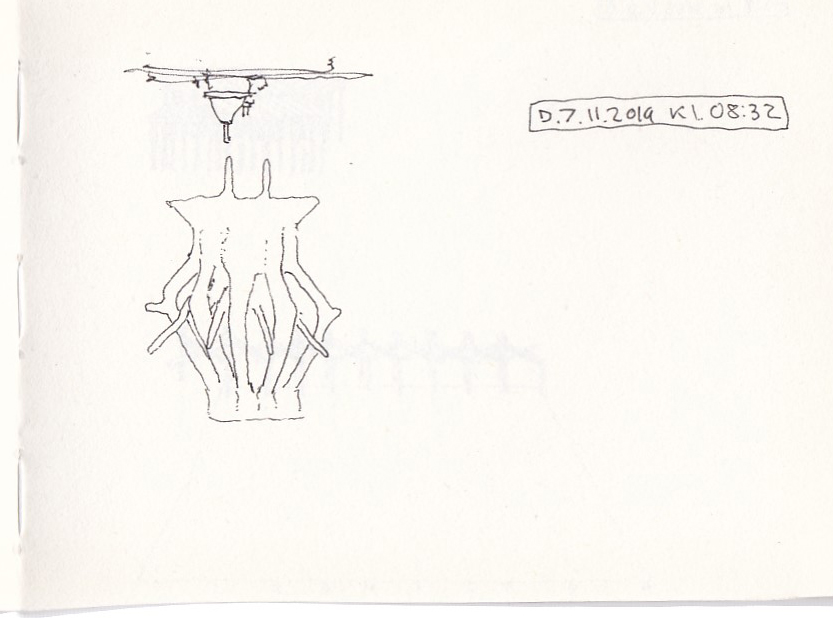 D.7.11.2019 KL.08:32